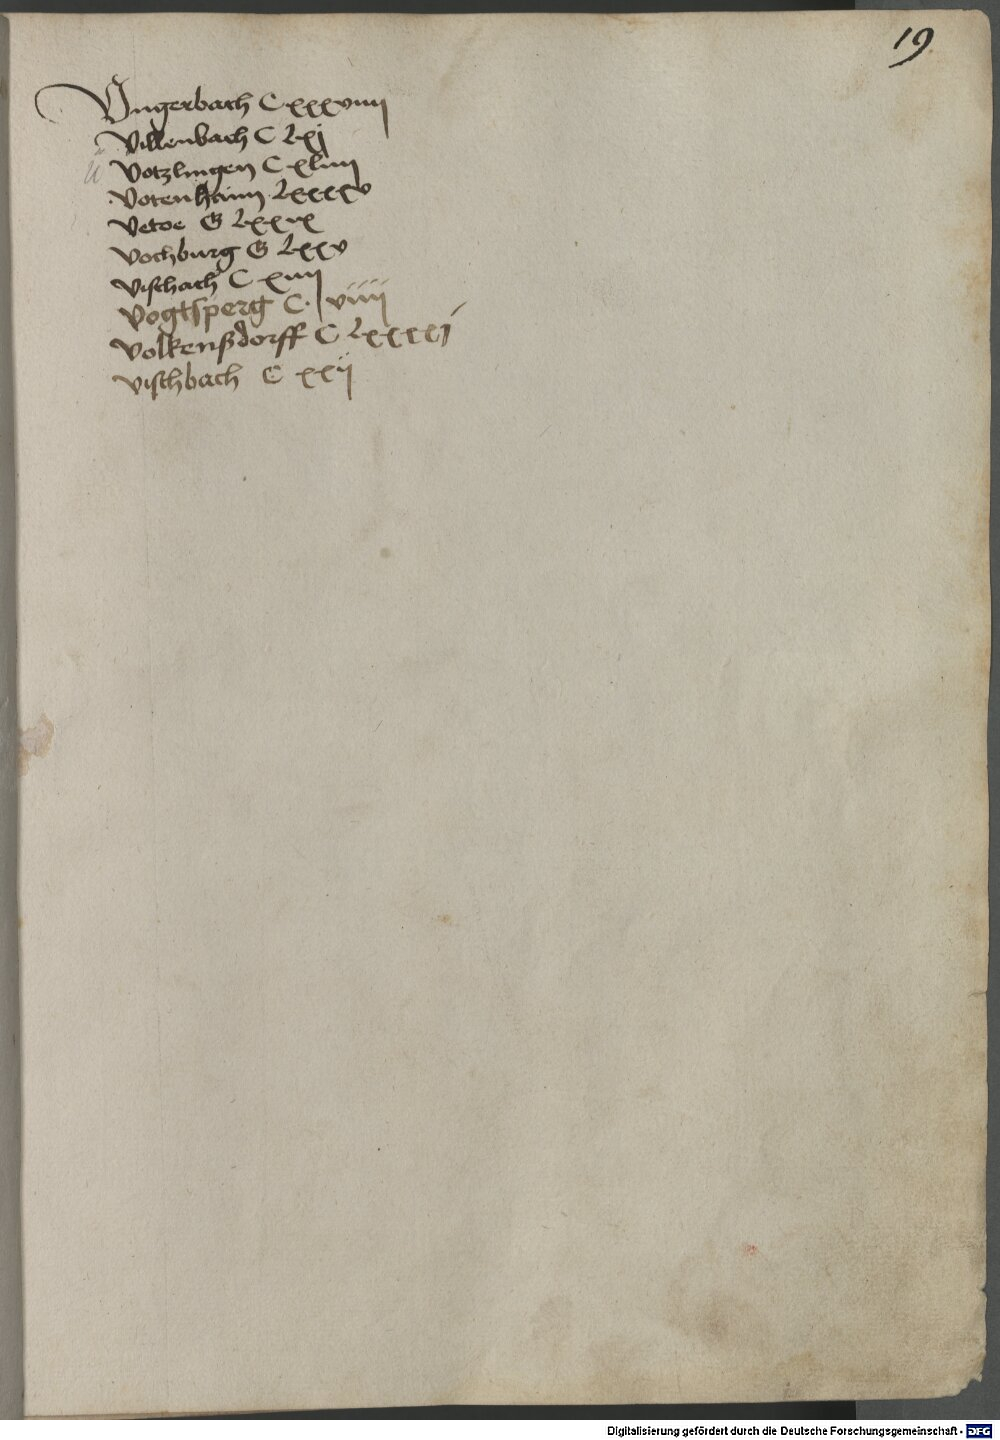 19
Vngerbach C xxxviiij
Villenbach C lxj
ü Votzlingen C xliiij
Votenhaim lxxxxv
Vetoe G lxxix
Vochburg G lxxv
Vischach C xiiij
Vogtsperg C. viiij
Volkenßdorff C lxxxxj
Vischbach C xxij
Digitalisierung gefördert durch die Deutsche Forschungsgemeinschaft - DFG